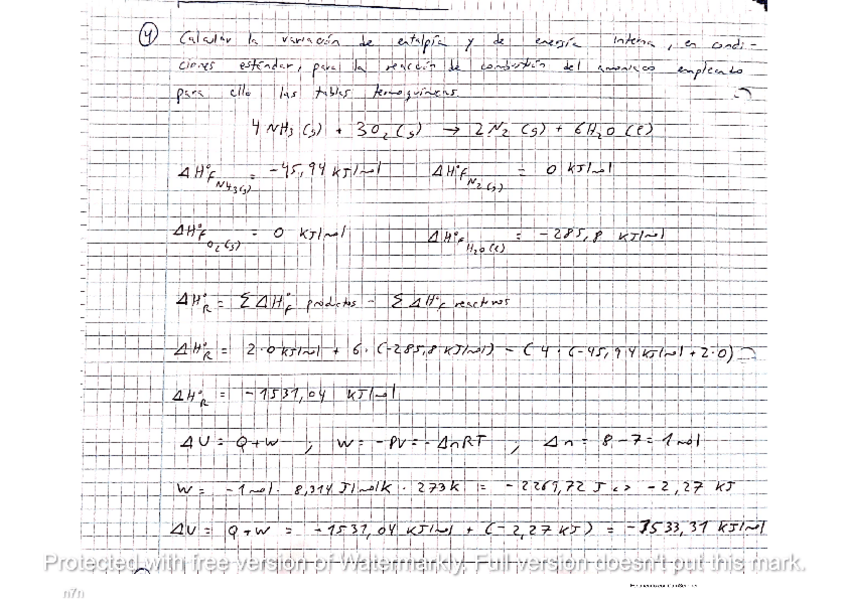 4) Calcular la variación de entalpía y de energía interna, en condi-
ciones estándar, para la reacción de combustión del amoniaco empleando
para ello las tablas termoquímicas.
4 NH3 (g) + 3O2 (g) → 2N2 (g) + 6H2O (l)
ΔH°f NH3(g) = -45,94 kJ/mol ΔH°f N2(g) = 0 kJ/mol
ΔH°f O2(g) = 0 kJ/mol ΔH°f H2O(l) = -285,8 kJ/mol
ΔH°R = Σ ΔH°f productos - Σ ΔH°f reactivos
ΔH°R = 2·0 kJ/mol + 6·(-285,8 kJ/mol) - (4·(-45,94 kJ/mol + 2·0)
ΔH°R = -1531,04 kJ/mol
ΔU = Q+W ; W = -PV = -ΔnRT ; Δn = 8-7 = 1 mol
W = -1 mol · 8,314 J/molK · 273K = -2269,72 J <> -2,27 KJ
ΔU = Q+W = -1531,04 kJ/mol + (-2,27 KJ) = -1533,31 KJ/mol
Protected with free version of Watermarkly. Full version doesn't put this mark.